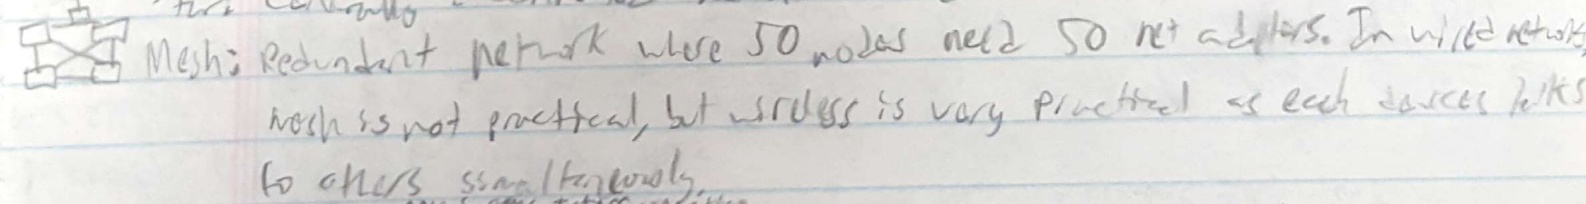 Mesh: Redundant network where 50 nodes need 50 net adapters. In wired network,
mesh is not practical, but wireless is very practical as each devices talks
to others simultaneously.